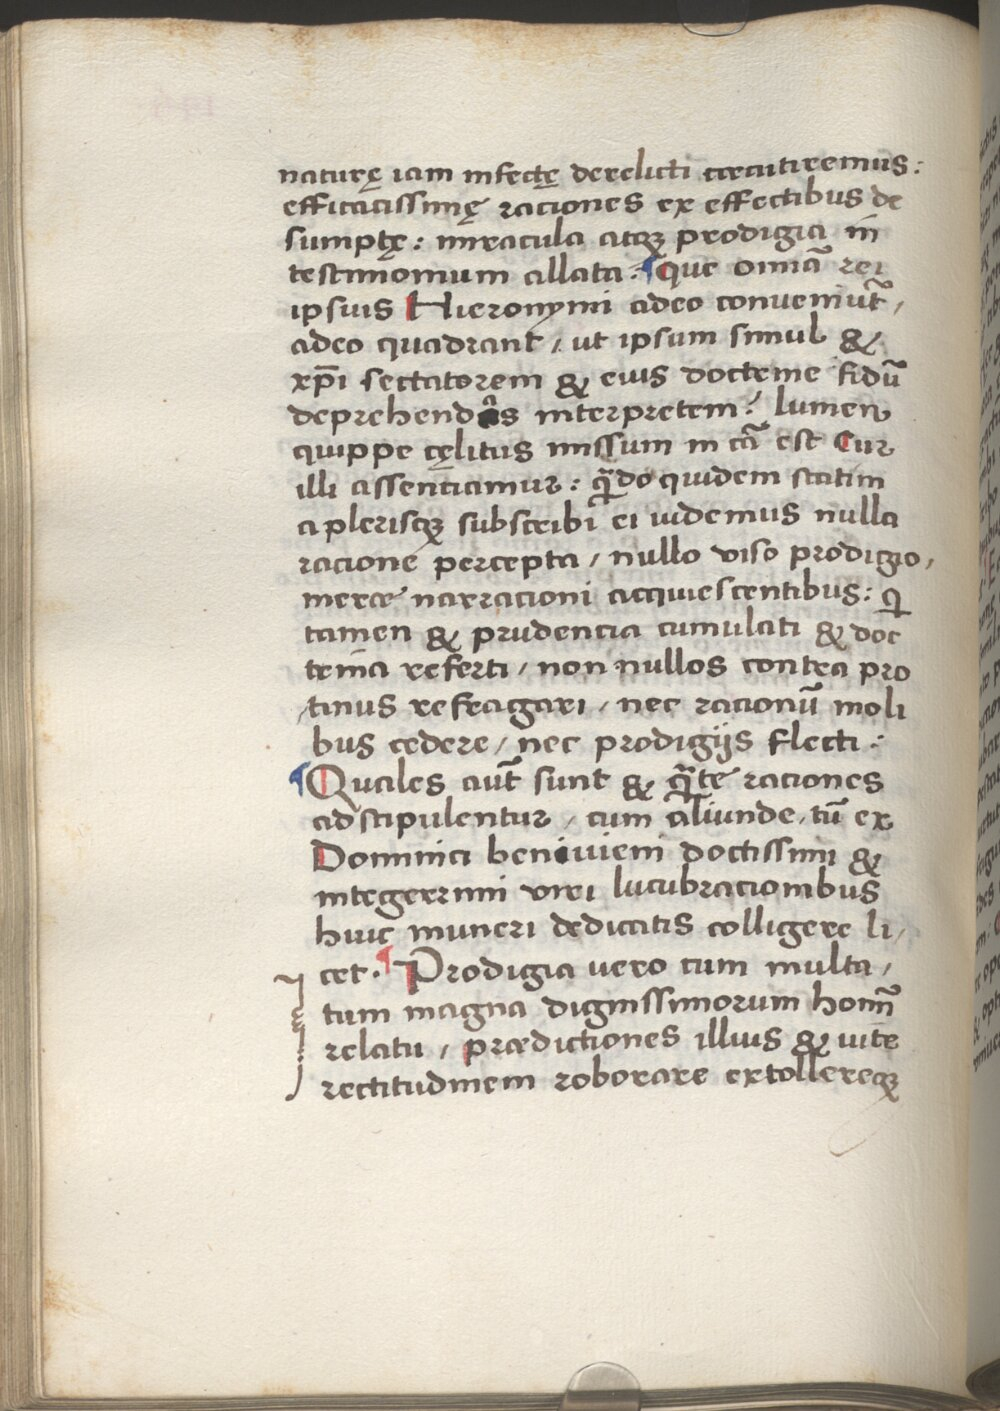 naturę iam infectę derelicti cecutiremus:
efficacissimę raciones ex effectibus de
sumptę: miracula atqꝫ prodigia in
testimonium allata: ¶ Que omīa rei
ipsius Hieronymi adeo conueniūt,
adeo quadrant, ut ipsum simul &
xp̄i sectatorem & eius doctrine fidū
deprehendas interpretem? lumen
quippe cęlitus missum in cā est Cur
illi assenciamur: qn̄do quidem statim
a plerisqꝫ subscribi ei uidemus nulla
racione percepta, nullo viso prodigio,
meræ narracioni acquiescentibus: qi
tamen & prudencia cumulati & doc
trina referti, non nullos contra pro
tinus refragari, nec racionū moli
bus cedere, nec prodigijs flecti:
¶ Quales aūt sunt & qāte raciones
adstipulentur, cum aliunde, tū ex
Dominici beniuieni doctissimi &
integerrimi viri lucubracionibus
huic muneri dedicatis colligere li,
cet. ¶ Prodigia uero cum multa,
tum magna dignissimorum homī
relatu, prædictiones illius & uite
rectitudinem roborare extollereqꝫ